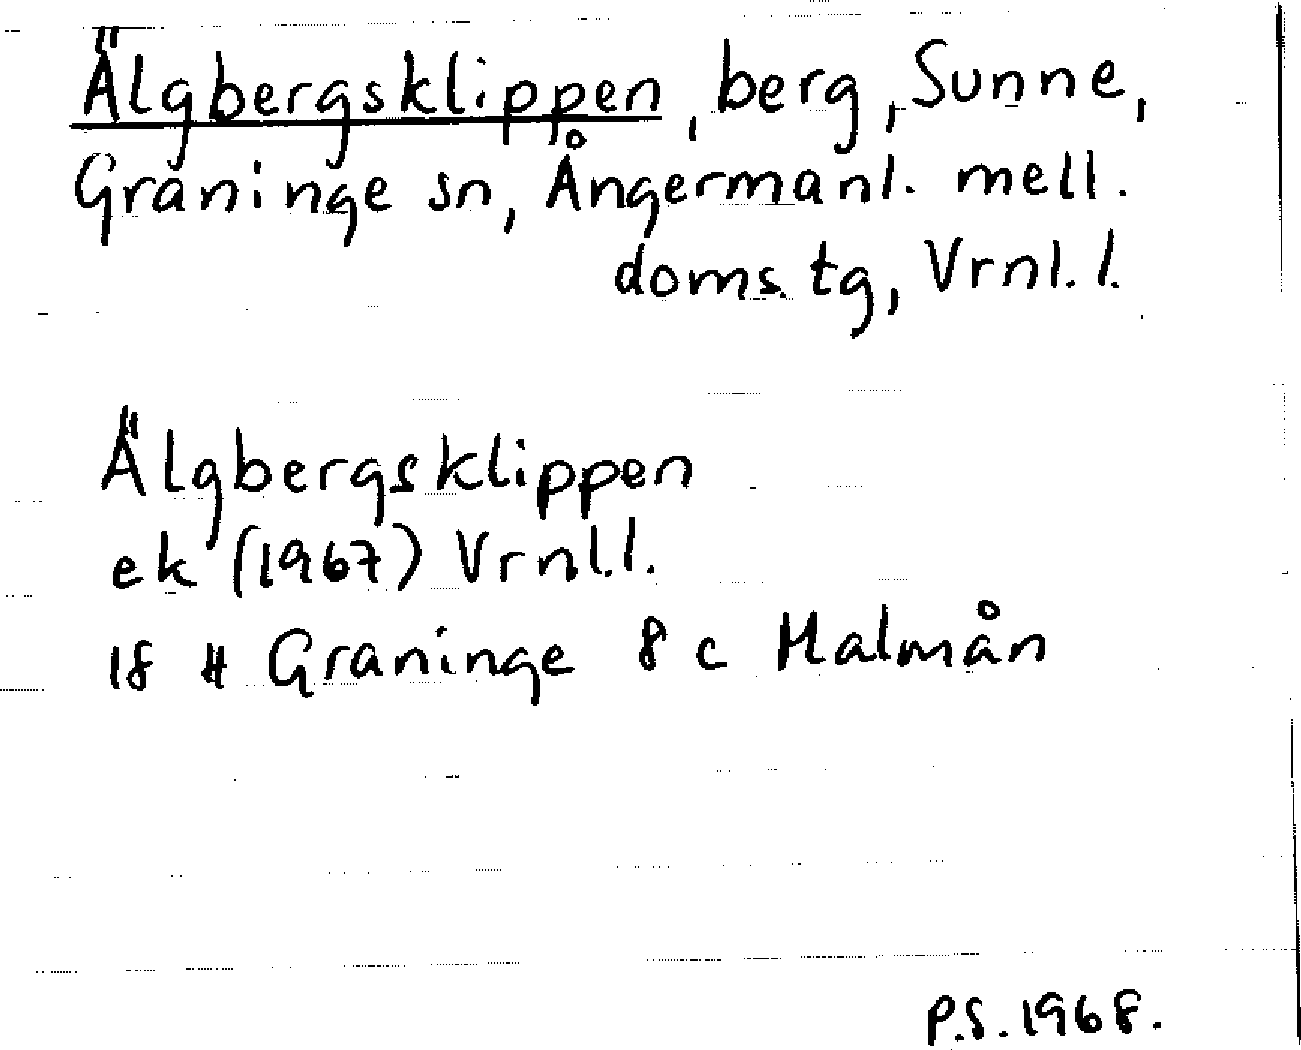 Älgbergsklippen, berg, Sunne,
Graninge sn, Ångermanl. mell.
doms. tg, Vrnl. l.
Älgbergsklippen
ek (1967) Vrnl.l.
18 H Graninge 8 c Malmån
P.S. 1968.